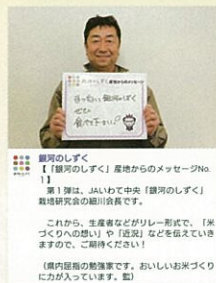 銀河のしずく 産地からのメッセージ
銀河のしずく
ぜひ
食べて下さい。
銀河のしずく
【「銀河のしずく」産地からのメッセージNo.
1】
第1弾は、JAいわて中央「銀河のしずく」
栽培研究会の細川会長です。
これから、生産者などがリレー形式で、「米
づくりへの想い」や「近況」などを伝えていき
ますので、ご期待ください！
（県内屈指の勉強家です。おいしいお米づくり
に力が入っています。監）